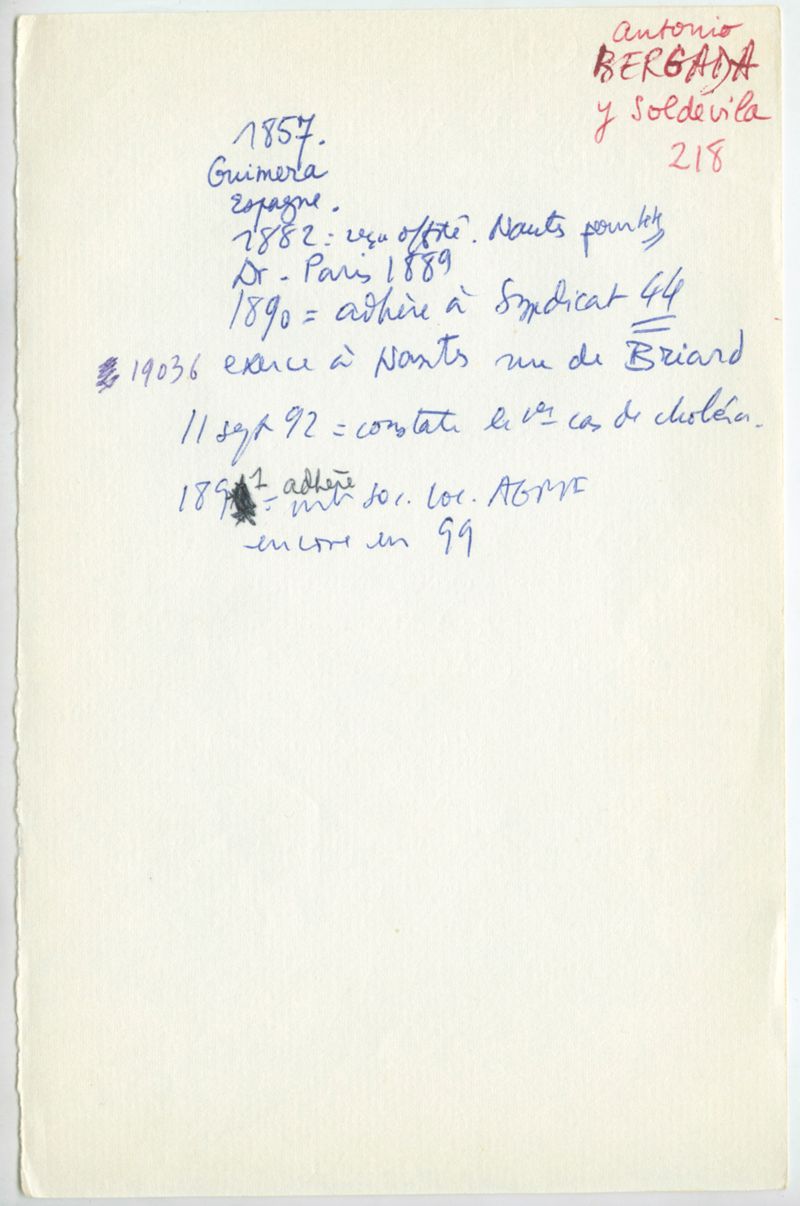 Antonio
BERGADA
y Soldevila
218
1857.
Guimera
Espagne.
1882 = reçu offté. Nantes
Dr. Paris 1889
1890 = adhère à Syndicat 44
19036 exerce à Nantes rue de Briord
11 sept 92 = constate le 1er cas de choléra.
1891 = adhère soc. loc. AGMF
encore en 99